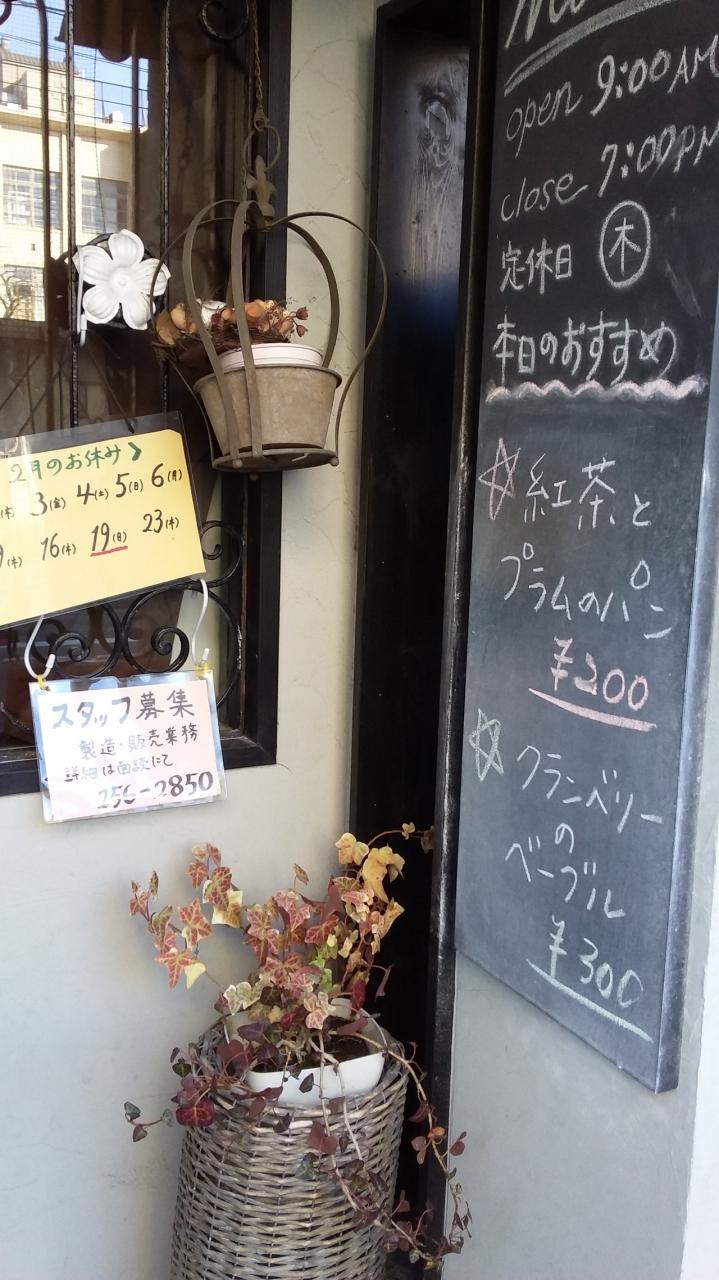 2月のお休み
(木) 3(金) 4(土) 5(日) 6(月)
9(木) 16(木) 19(日) 23(木)
スタッフ募集
製造・販売業務
詳細は面談にて
256-2850
open 9:00AM
close 7:00PM
定休日 木
本日のおすすめ
☆紅茶と
プラムのパン
¥200
☆クランベリー
の
ベーブル
¥300